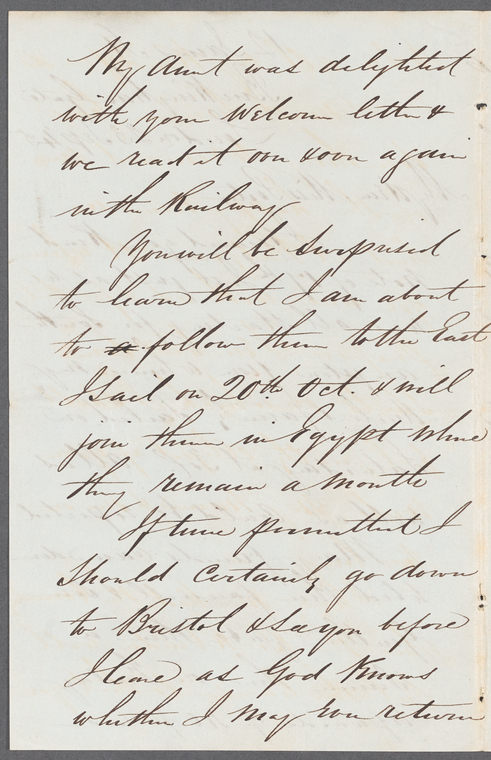 My Aunt was delighted
with your Welcome letter &
we read it over & over again
in the Railway
You will be surprised
to learn that I am about
to a follow them to the East
I sail on 20th Oct. & will
join them in Egypt where
they remain a month
If time permitted I
should certainly go down
to Bristol & see you before
I leave as God Knows
whether I may ever return